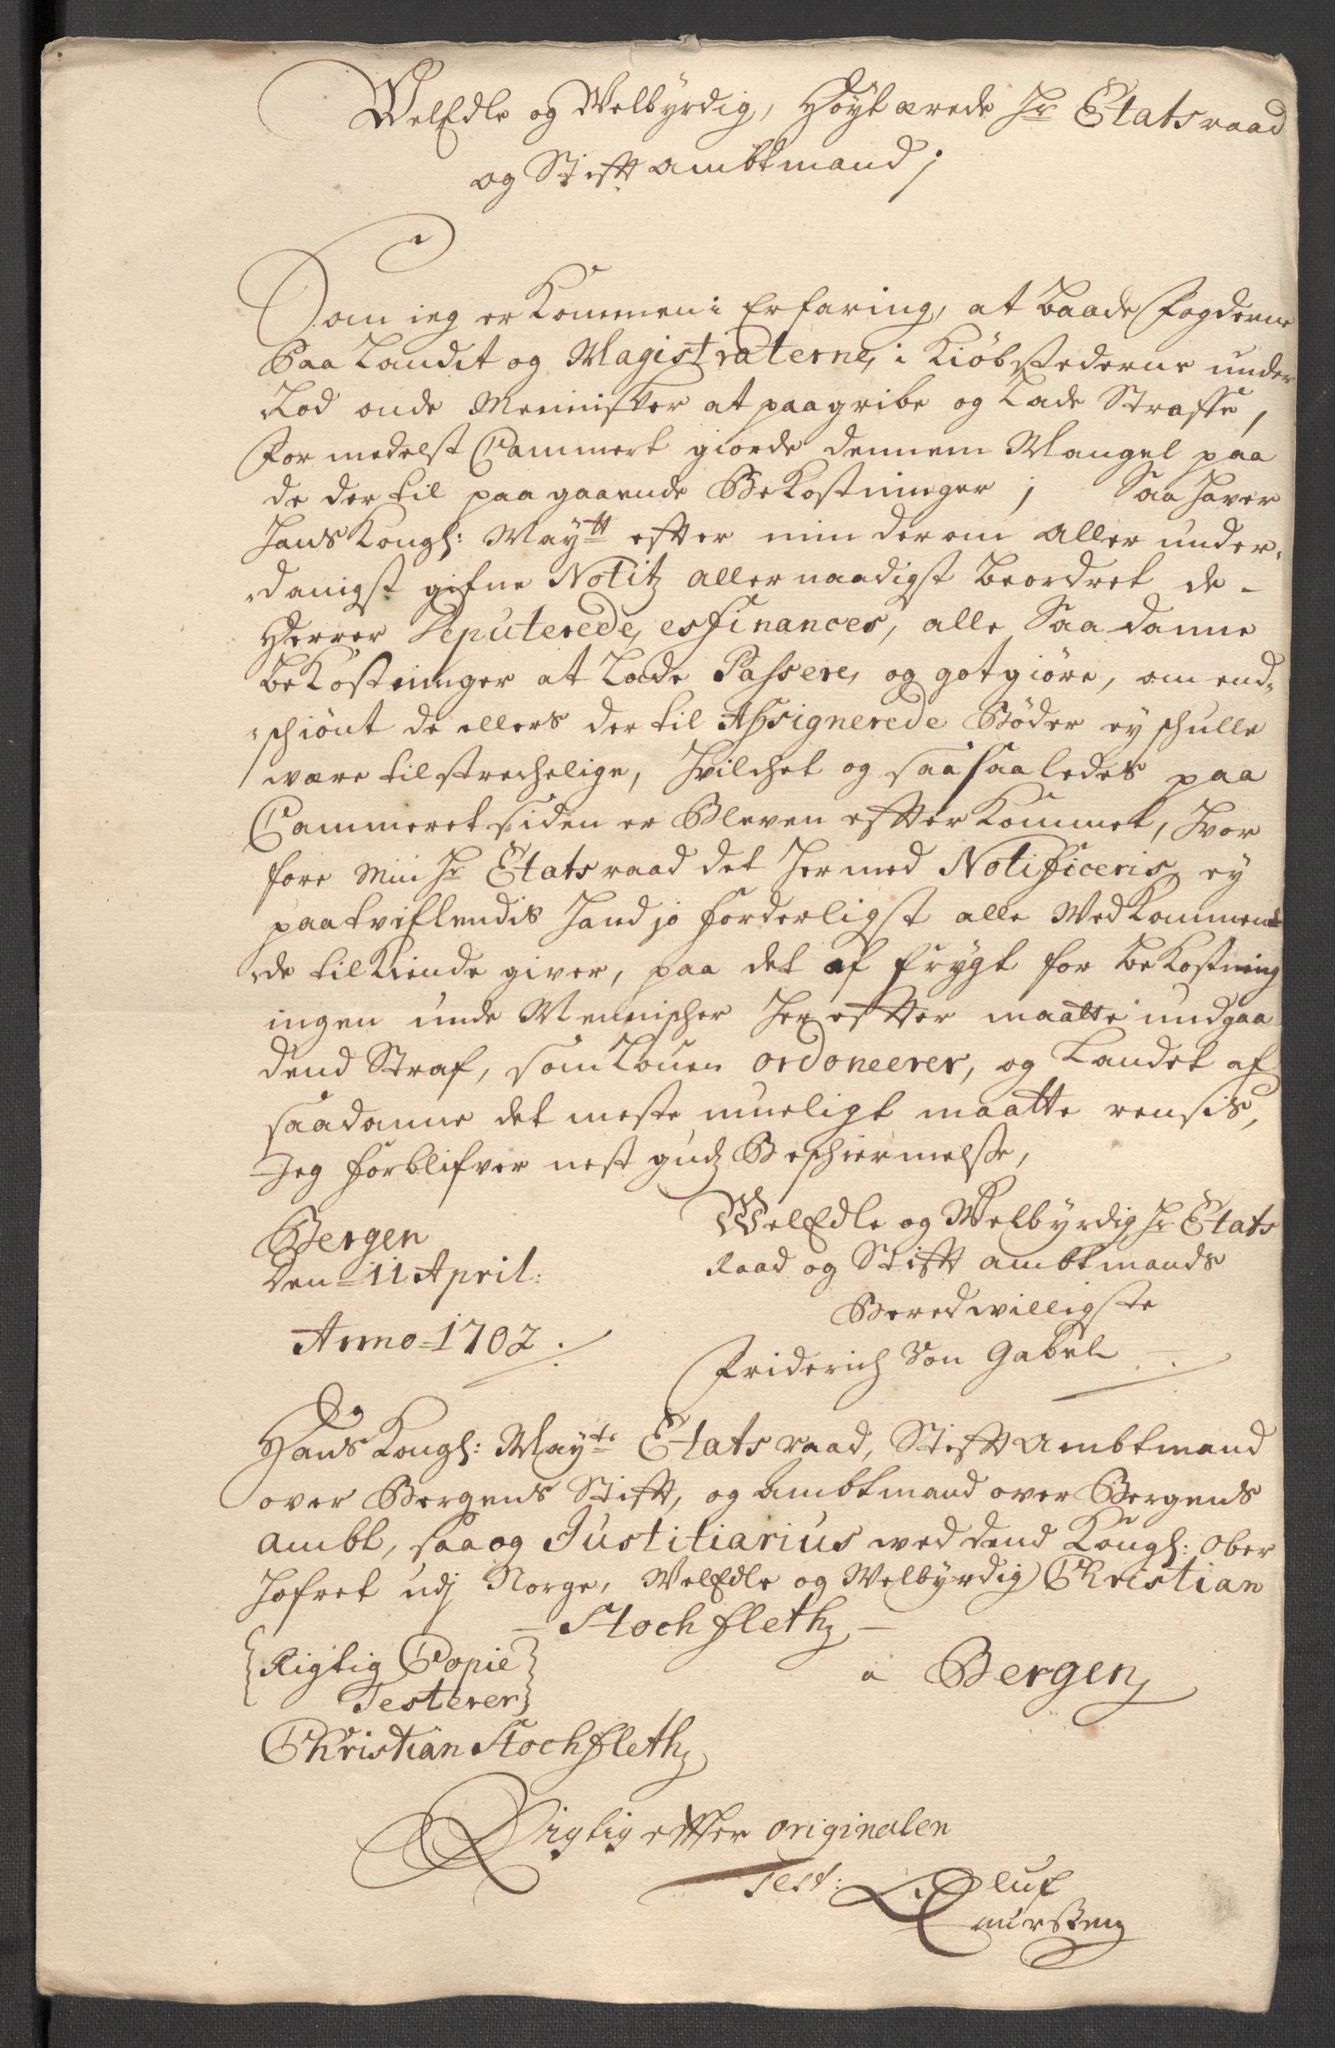 WelEdle og Welbyrdig, Høyt ærede Hr Etatsraad
og Stiftambtmand;
Som ieg er Kommen i Erfaring, at baade Fogderne
Paa Landit og Magistraterne, i Kiøbstederne under
Lod onde Mennisker at paagribe og Lade Straffe,
Formedelst Cammert giorde dennem Mangel paa
de der til paagaaende BeKostninger; Saa haver
Hans Kongl: Maytt efter min derom aller under-
danigst gifne Notitz allernaadigst beordret de
Herrer Deputerede, es finances, alle Saadanne
beKostninger at Lade Passere, og gotgiøre, om end-
schiønt de ellers der til Assignerede Bøder ey schulle
være tilstrechelige, Hvilchet og saa saaledes paa
Cammeret siden er Bleven efterKommet, Hvor
fore Min Hr Etatsraad det hermed Notificeris, ey
paatviflendis hand jo forderligst alle VedKommen-
de tilkiende giver, paa det af frygt for beKostning
ingen unde Mennischer her efter maatte undgaa
dend Straf, som Louen ordoneerer, og Landet af
saadanne det meste mueligt maatte rensis,
Jeg forblifver nest gudz Beschiermelse,
Bergen
Den 11 April:
Anno 1702
WelEdle og Welbyrdig Hr Etats
Raad og Stift ambtmands
Beredwilligste
Friderich Von Gabel
Hans Kongl: Mayts Etatsraad, Stift Ambtmand
over Bergens Stift, og Ambtmand over Bergens
Ambt, saa og Justitiarius wed dend Kongl: Ober
Hofret udj Norge, WelEdle og Welbyrdig Christian
Stochfleth
a Bergen
Rigtig Copie
Testerer
Christian Stochfleth
Rigtig efter originalen
Test: Oluf